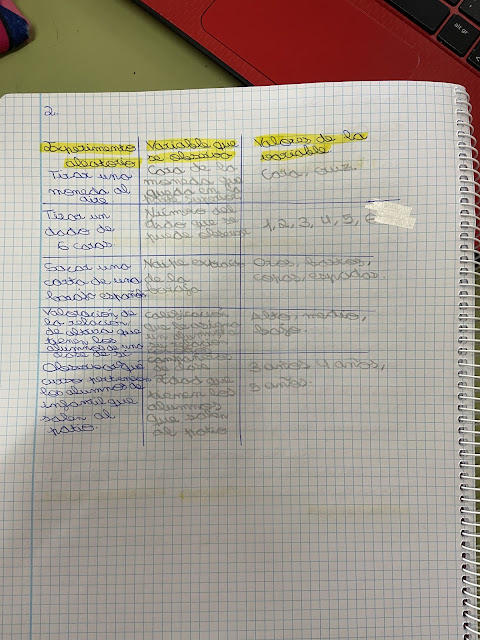 2.
Experimento
aleatorio
Variable que
se observa
Valores de la
variable
Tirar una
moneda al
aire
Cara de la
moneda que
queda en la
parte superior
Cara, cruz.
Tirar un
dado de
6 caras
Número del
dado que se
puede observar
1, 2, 3, 4, 5, 6
Sacar una
carta de una
baraja española
Naipe extraído
de la
baraja
Oros, bastos,
copas, espadas.
Valoración de
la relación
de altura que
tienen los
alumnos de una
clase de 5º
calificación
que se asigna
Alto, medio,
bajo.
Observar a qué
curso pertenecen
los alumnos de
infantil que
salen al
patio.
compañeros
de clase
Edad que
tienen los
alumnos
que salen
al patio
3 años 4 años,
5 años.
alt gr